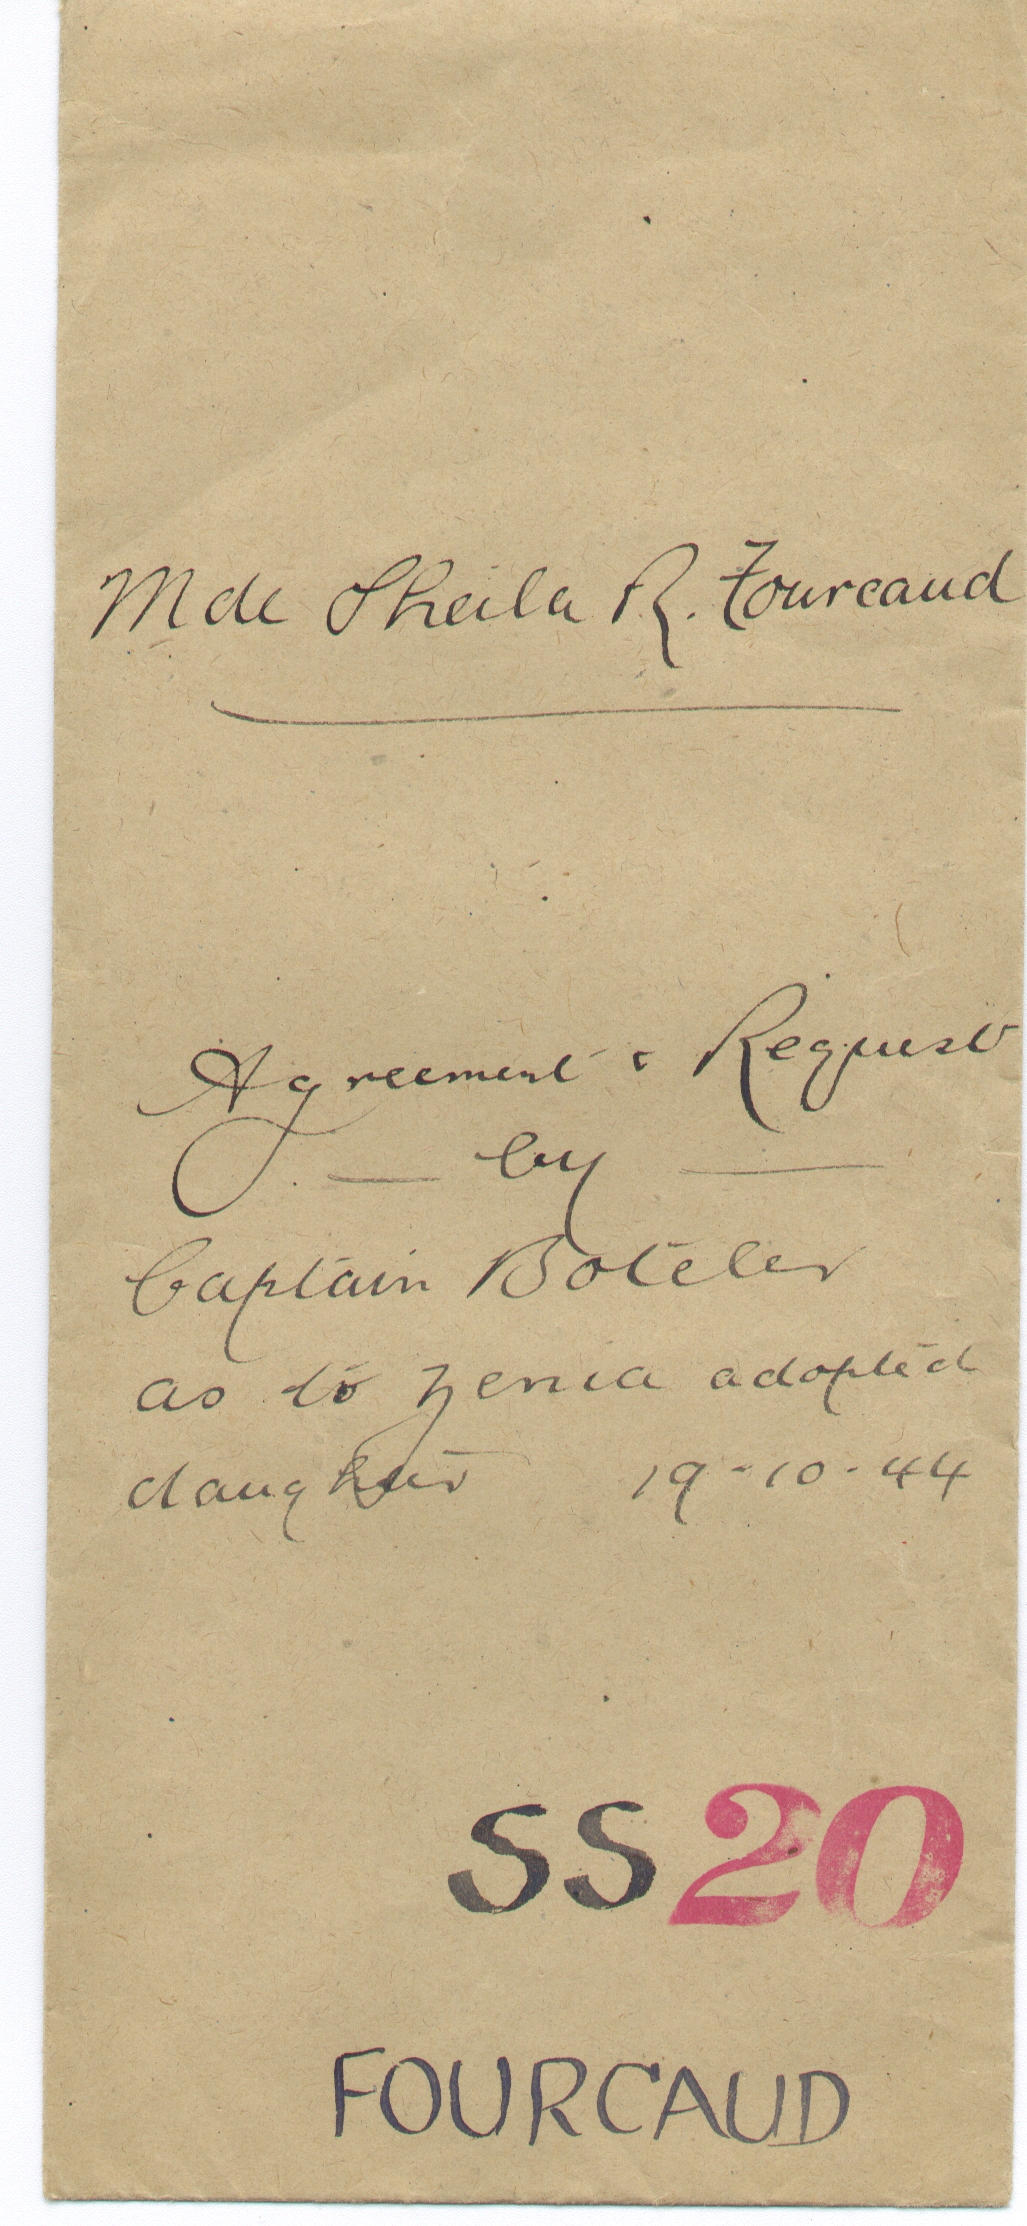 Mde Sheila R. Fourcaud
Agreement & Request
— by —
Captain Boteler
as to Zenia adopted
daughter 19-10-44
SS20
FOURCAUD